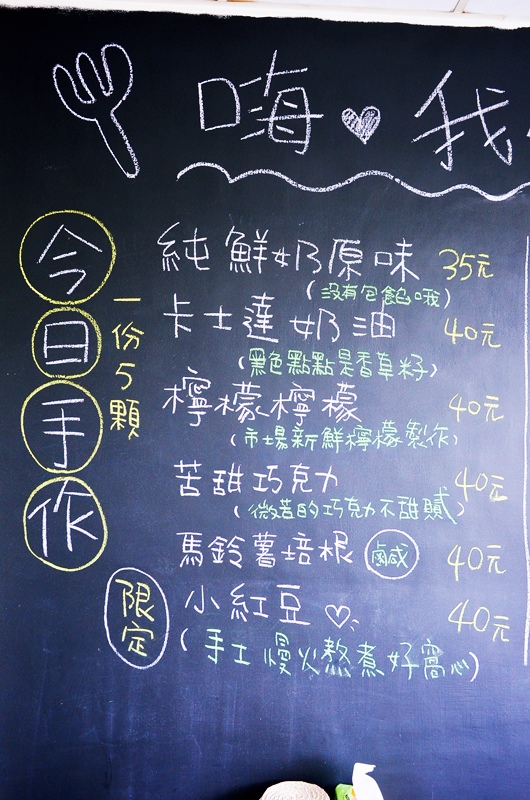 嗨♡我
今日手作
一份5顆
純鮮奶原味 35元
(沒有包餡哦)
卡士達奶油 40元
(黑色點點是香草籽)
檸檬檸檬 40元
(市場新鮮檸檬製作)
苦甜巧克力 40元
(微苦的巧克力不甜膩)
馬鈴薯培根 鹹 40元
限定 小紅豆♡ 40元
(手工慢火熬煮好窩心)